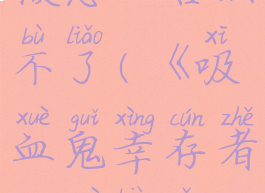 bù liǎo xī
不了(《吸
xuè guǐ xìng cún zhě
血鬼幸存者